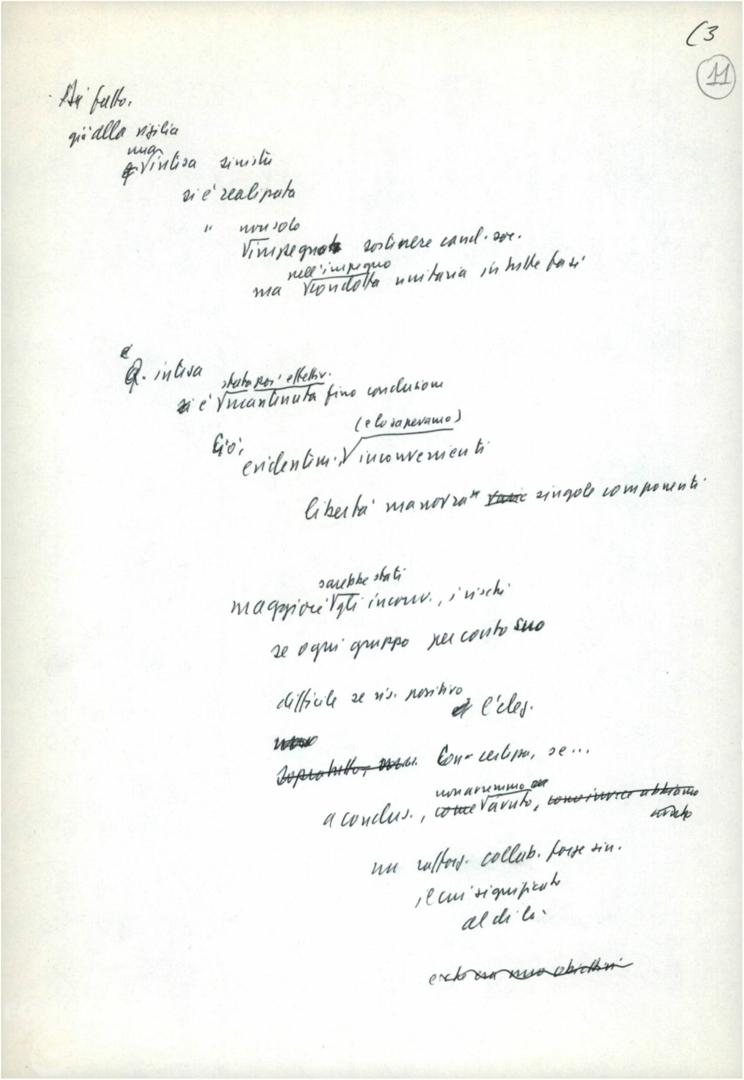 (3
11
Di fatto.
già alla vigilia
una
intesa sinistr
si è realizzata
" non solo
impegnata sostenere cand. soc.
nell'impegno
ma condotta unitaria in tutte fasi
e
Q. intesa
stata poi effettiv.
si è mantenuta fino conclusione
Ciò,
(e lo sapevamo)
evidentem. inconvenienti
libertà manovra singole componenti
sarebbe stati
maggiori gli inconv., i rischi
se ogni gruppo per conto suo
difficile se ris. positivo
e l'eleg.
Con certezza, se...
non avremmo
a conclus., come avuto, come invece abbiamo
avuto
un rafforz. collab. forze sin.
il cui significato
al di là.